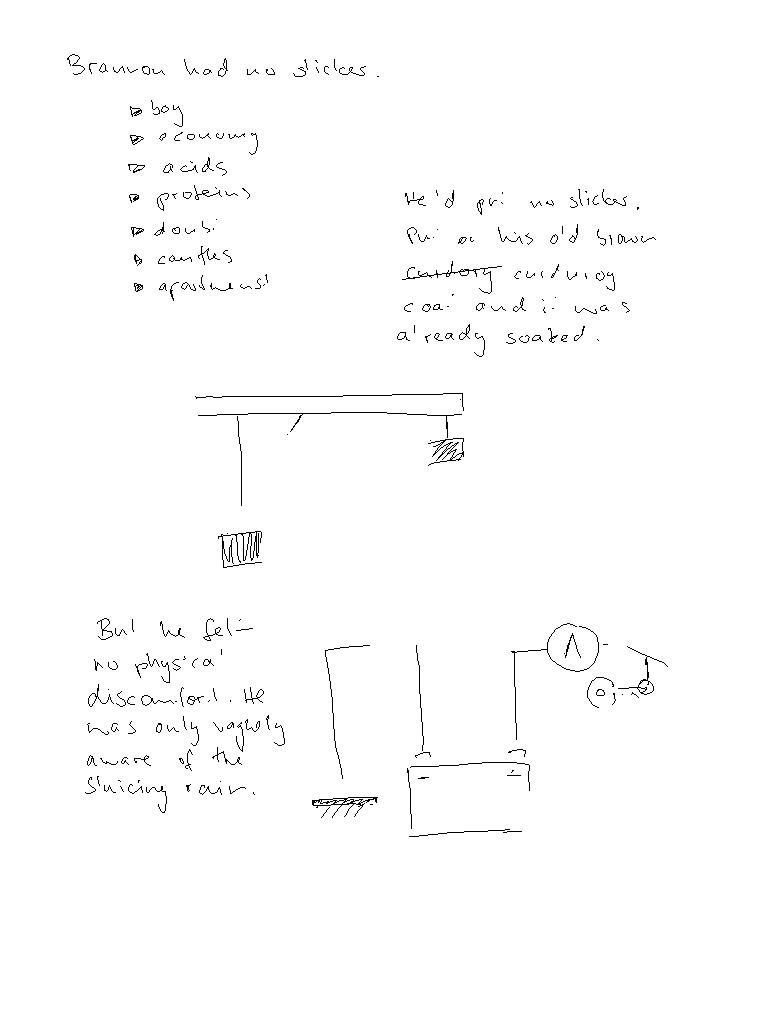 Brannon had no slicker.
boy
economy
acids
proteins
doubt
candles
apartment
He'd put no slicker.
Put on his old brown
corduroy
coat and it was
already soaked.
But he felt
no physical
discomfort. He
was only vaguely
aware of the
sluicing rain.
A